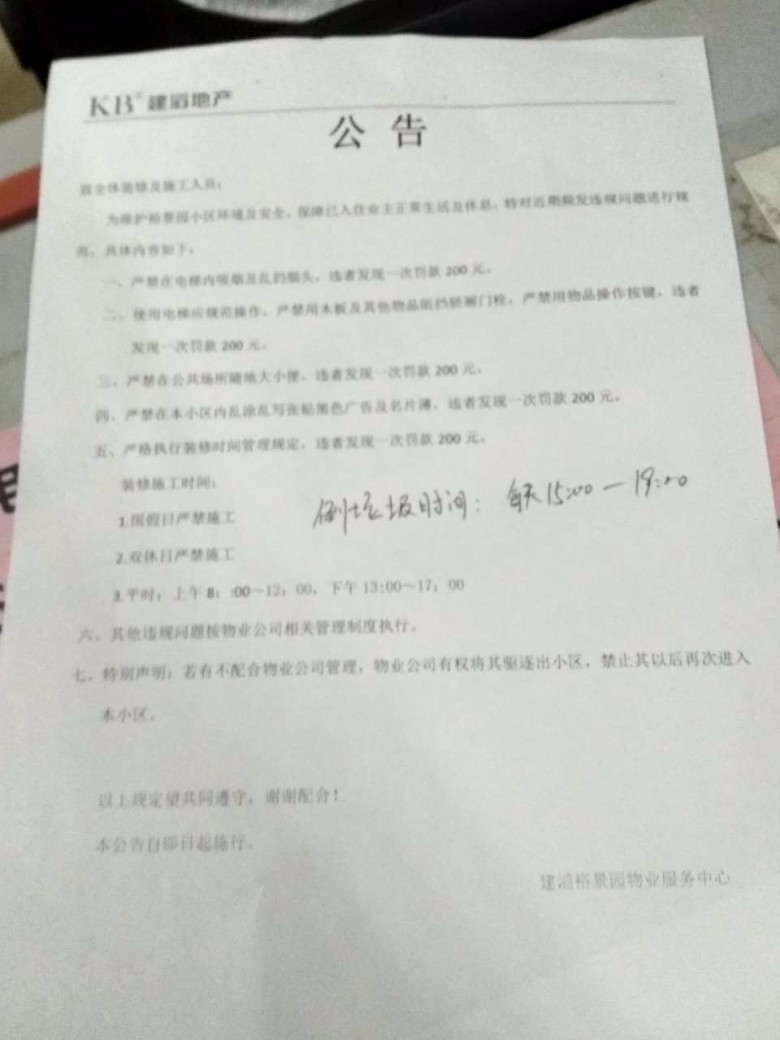 KB® 建滔地产
公 告
致全体装修及施工人员：
为维护裕景园小区环境及安全，保障已入住业主正常生活及休息，特对近期频发违规问题进行规
范。具体内容如下。
一、严禁在电梯内吸烟及乱扔烟头，违者发现一次罚款 200 元。
二、使用电梯应规范操作，严禁用木板及其他物品阻挡轿厢门栓，严禁用物品操作按键，违者
发现一次罚款 200 元。
三、严禁在公共场所随地大小便，违者发现一次罚款 200 元。
四、严禁在本小区内乱涂乱写张贴黑色广告及名片薄，违者发现一次罚款 200 元。
五、严格执行装修时间管理规定，违者发现一次罚款 200 元。
装修施工时间：
倒垃圾时间：每天15:00—19:00
1.国假日严禁施工
2.双休日严禁施工
3.平时：上午 8：:00～12：00，下午 13:00～17：00
六、其他违规问题按物业公司相关管理制度执行。
七、特别声明：若有不配合物业公司管理，物业公司有权将其驱逐出小区，禁止其以后再次进入
本小区。
以上规定望共同遵守，谢谢配合！
本公告自即日起施行。
建滔裕景园物业服务中心